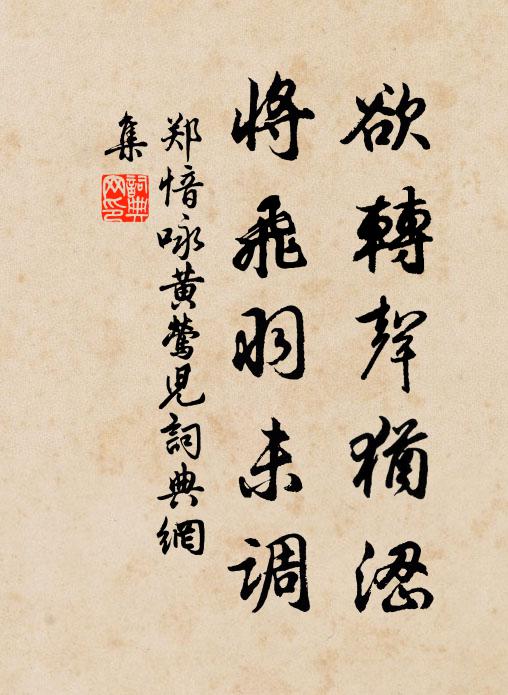 欲轉聲猶澀
將飛羽未調
郑愔咏黄莺児詞典網
集
詞典
网印